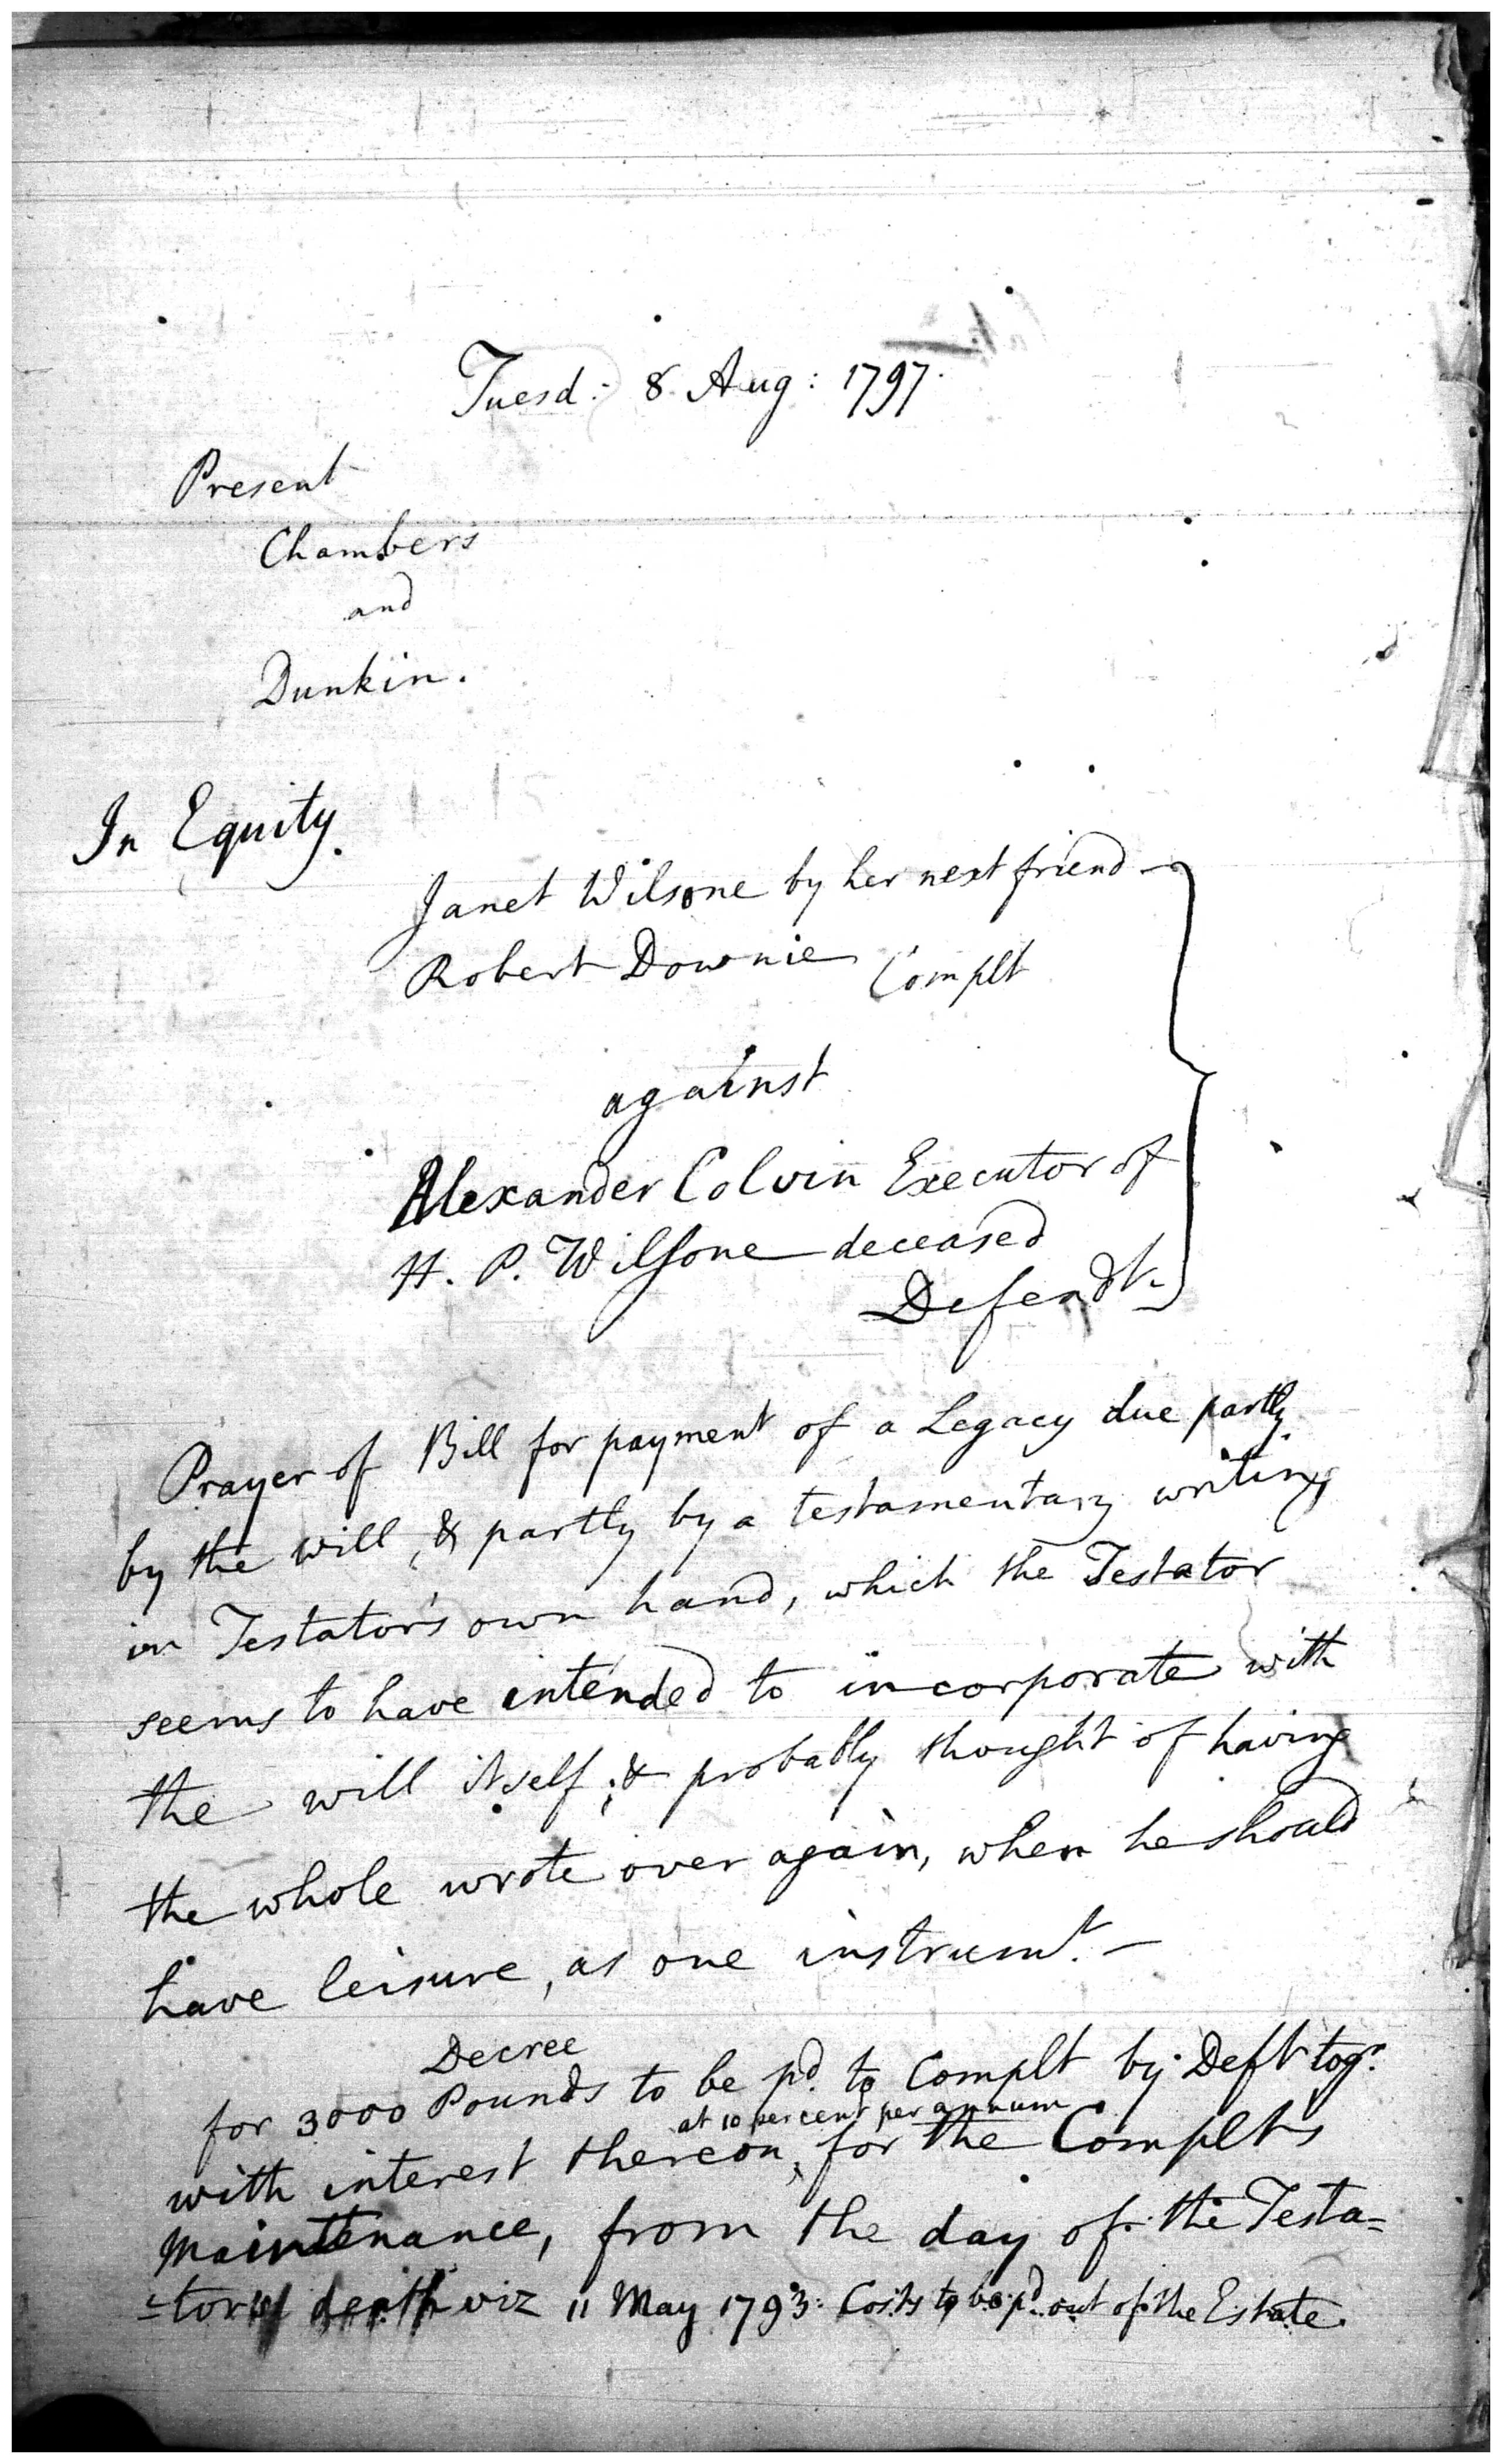 Tuesd: 8 Aug: 1797.
Present
Chambers
and
Dunkin.
In Equity.
Janet Wilsone by her next friend
Robert Downie Complt
against
Alexander Colvin Executor of
H. P. Wilsone deceased
Defendt.
Prayer of Bill for payment of a Legacy due partly
by the will, & partly by a testamentary writing
in Testator's own hand, which the Testator
seems to have intended to incorporate with
the will itself; & probably thought of having
the whole wrote over again, when he should
have leisure, as one instrumt. —
Decree
for 3000 Pounds to be pd. to Complt by Deft togr.
at 10 per cent per annum
with interest thereon, for the Complts
Maintenance, from the day of the Testa=
=tors death viz 11 May 1793. Costs to be pd. out of the Estate.